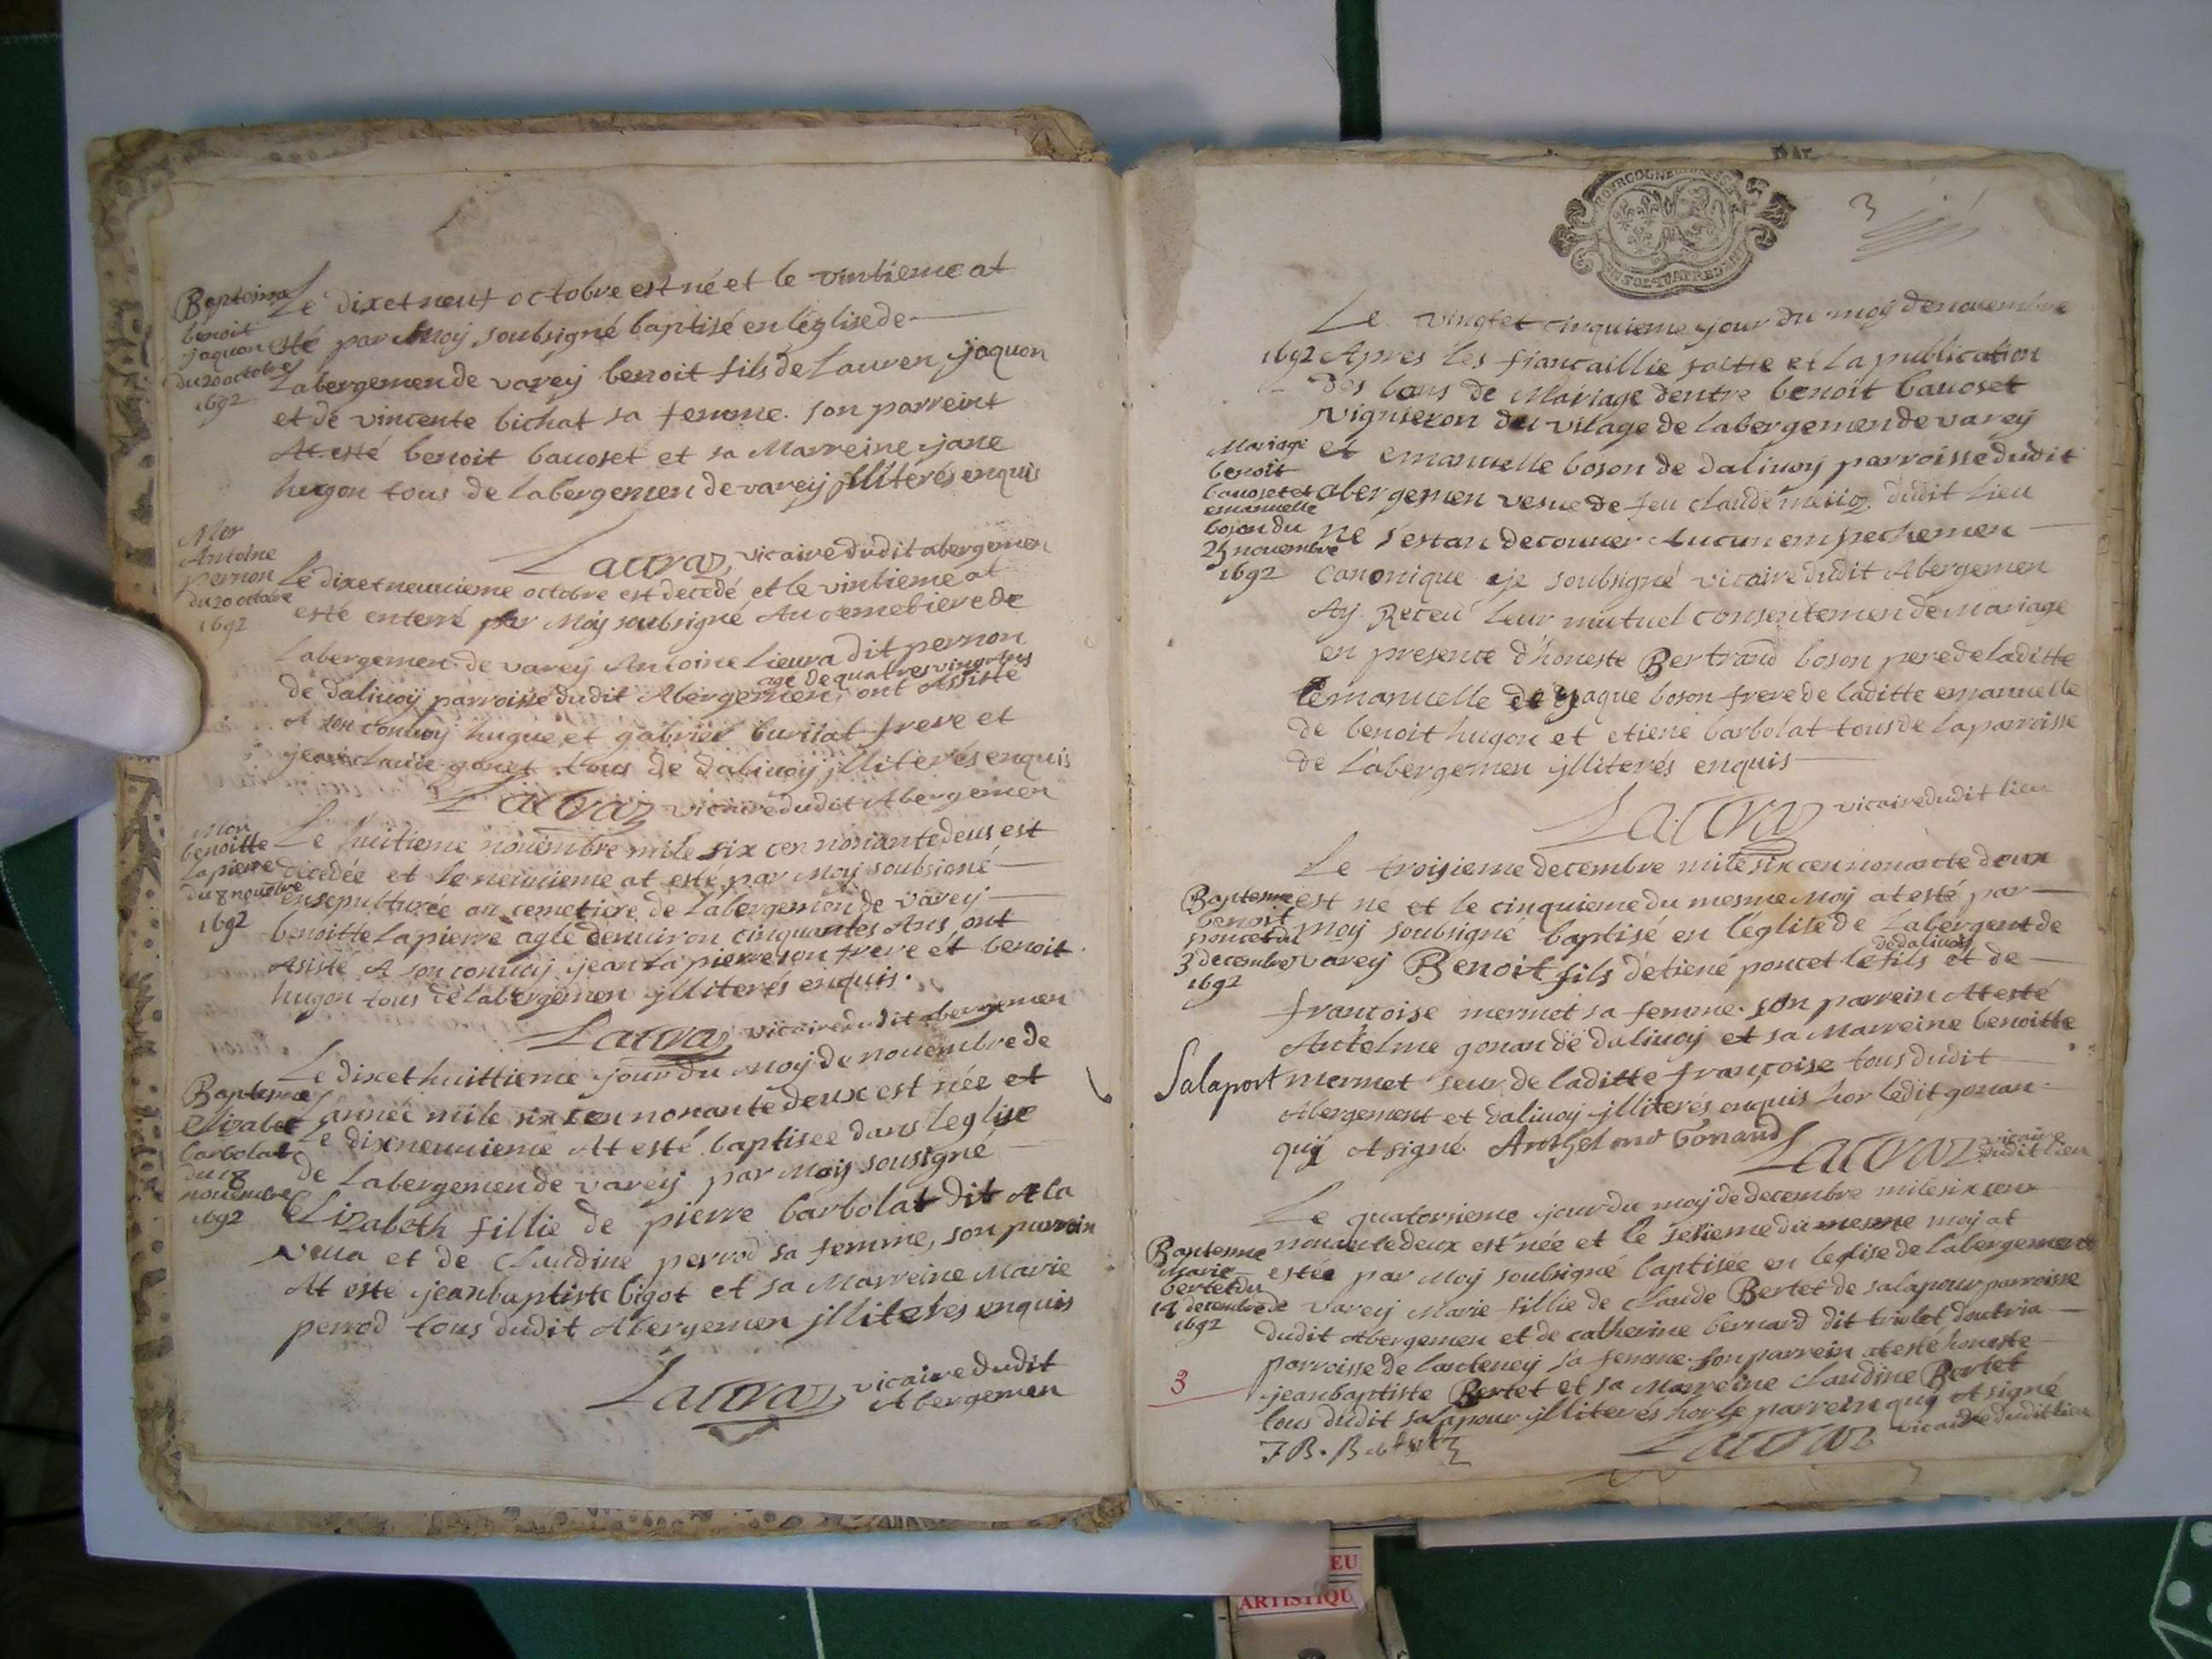 Bapteime
benoit
jaquon
du 20 octobre
1692
Le dixetneuf octobre est né et le vintieme at
esté par Moy soubsigné baptisé en léglise de
Labergemen de varey benoit fils de Lauren jaquon
et de vincente bichat sa femme. son parreint
At esté benoit bauoset et sa Marreine jane
hugon tous de labergemen de varey jlliterés enquis
Lacraz vicaire dudit abergemen
Mor
Antoine
pernon
du 20 octobre
1692
Le dixetneuuieme octobre est decedé et le vintieme at
esté enterré par Moy soubsigné Au cemetiere de
Labergemen de varey Antoine Lieura dit pernon
age de quatres vingt Ans
de daliuoy parroisse dudit Abergemen, ont Assisté
A son conuoy hugue et gabriel burilat frere et
jean claude gonet tous de daliuoy jlliterés enquis
Lacraz vicaire dudit Abergemen
Mor
benoitte
Lapierre
du 8 nouebre
1692
Le huitieme nouembre mile six cen nonante deus est
decedée et le neuuieme at esté par Moy soubsigné
ensepulturée au cemetiere de Labergemen de varey
benoitte Lapierre agée denuiron cinquantes Ans ont
Asisté A son conuoy jean Lapierre son frere et benoit
hugon tous de labergemen jlliterés enquis.
Lacraz vicaire dudit abergemen
Bapteme
Elizabet
barbolat
du 18
nouembre
1692
Le dixethuittieme jour du Moy de nouembre de
Lannée mile six cen nonante deux est née et
Le dixneuuieme At esté baptisée dans leglise
de Labergemen de varey par Moy sousigné
Elizabeth fillie de pierre barbolat dit A la
veua et de Claudine perrod sa femme, son parrein
At esté jeanbaptiste bigot et sa Marreine Marie
perrod tous dudit Abergemen jlliterés enquis
Lacraz vicaire dudit
Abergemen
3
Le vingtet cinquieme jour du moy de nouembre
1692 Apres les fiancaillie faitte et la publication
des bans de Mariage dentre benoit bauoset
vignieron du vilage de labergemen de varey
Mariage
benoit
bauoset et
emanuelle
boson du
25 nouembre
1692
et emanuelle boson de daliuoy parroisse dudit
abergemen vesue de feu claude dudit Lieu
ne s'estan decouuer Aucun empechemen
Canonique je soubsigné vicaire dudit Abergemen
Ay Receu Leur mutuel consentemen de Mariage
en presence d'honeste Bertrand boson pere de laditte
emanuelle de jaque boson frere de laditte emanuelle
de benoit hugon et etiene barbolat tous de la parroisse
de Labergemen jlliterés enquis
Lacraz vicaire dudit lieu
Bapteme
benoit
poncet du
3 decembre
1692
Le troisieme decembre mile six cen nonante deux
est né et le cinquieme du mesme Moy at esté par
moy soubsigné baptisé en léglise de Labergent de
de daliuoy
varey Benoit fils detiené poncet le fils et de
francoise mermet sa femme. son parrein At esté
Antelme gonan de daliuoy et sa Marreine benoitte
Salaport
mermet seur de laditte francoise tous dudit
Abergement et daliuoy jlliterés enquis hor ledit gonan
quj A signé. Anthelme Gonand
Lacraz vicaire
dudit lieu
Bapteme
Marie
bertet du
14 decembre
1692
Le quatorsieme jour du moy de decembre mile six cens
nonante deux est née et le sesieme du mesme moy at
estée par Moy soubsigné baptisée en leglise de labergement
de varey Marie fillie de Claude Bertet de salapour parroisse
dudit Abergemen et de catherine bernard dit triolet doutria
parroisse de lanteney sa femme. son parrein at esté honeste
jeanbaptiste Bertet et sa Marreine claudine Bertet
tous dudit salapour jlliterés hor le parrein quj A signé
J B. Bertet
Lacraz vicaire dudit lieu
3
EU
ARTISTIQU